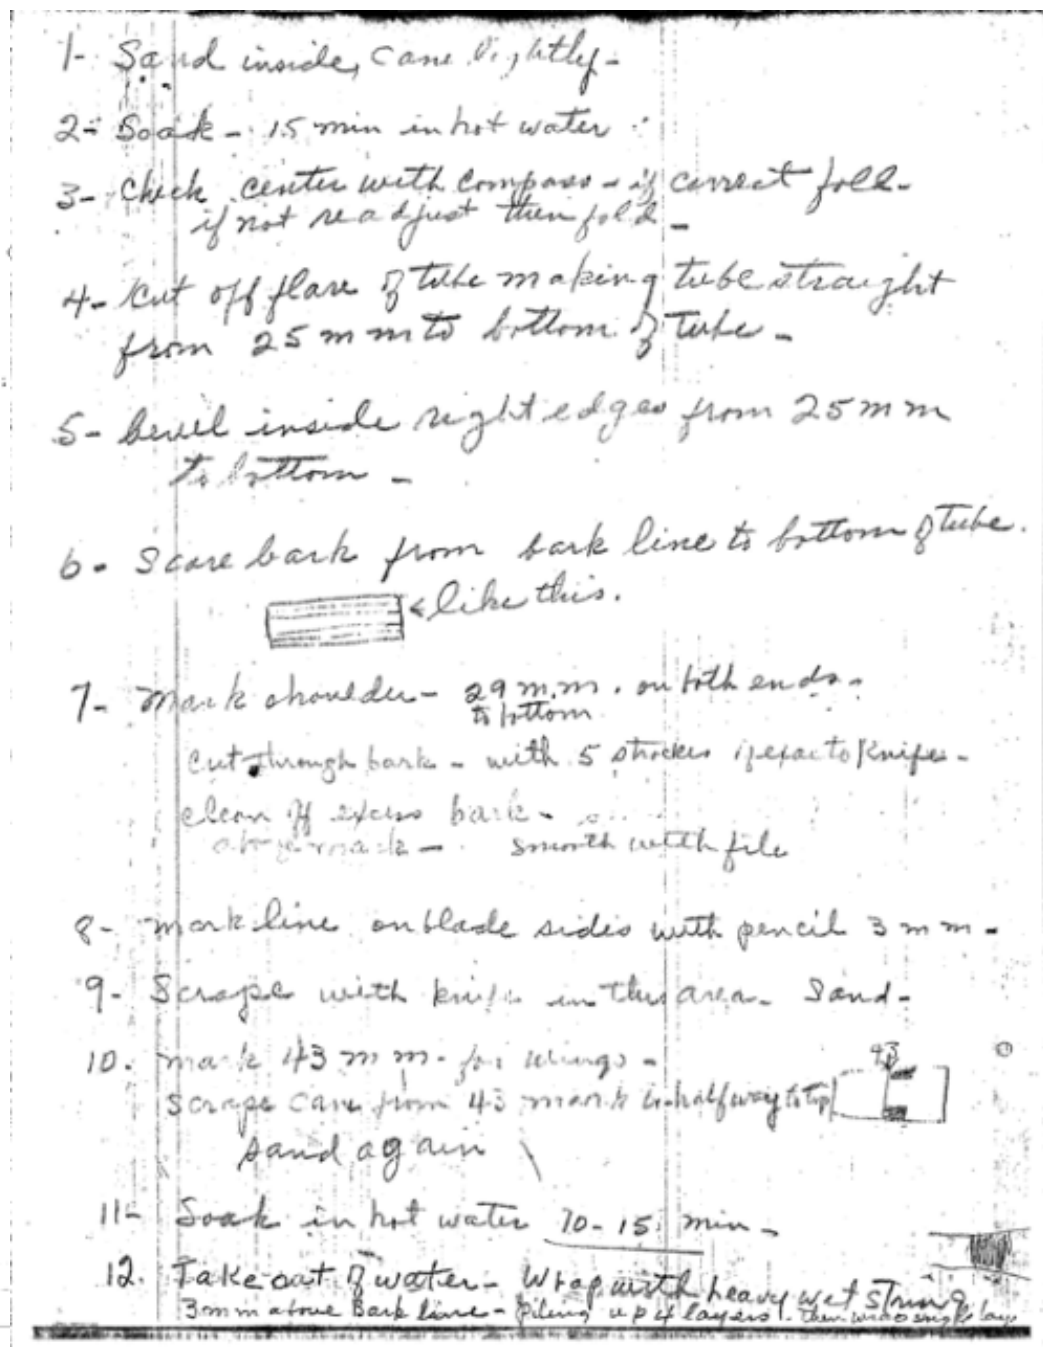 1- Sand inside, cane lightly -
2- Soak - 15 min in hot water
3- Check center with compass - if correct fold -
if not readjust then fold -
4- Cut off flare of tube making tube straight
from 25 mm to bottom of tube -
5- bevel inside right edges from 25 mm
to bottom -
6- Score bark from bark line to bottom of tube.
< like this.
7- Mark shoulder - 29 m.m. on both ends -
to bottom
Cut through bark - with 5 strokes of exacto Knife -
clean off excess bark -
above mark - smooth with file
8- mark line on blade sides with pencil 3 mm -
9- Scrape with knife in this area - Sand -
10. mark 43 mm - for wings -
43
scrape cane from 43 mark to halfway to top
sand again
11- Soak in hot water 10-15 min -
12. Take out of water - Wrap with heavy wet string
3mm above Bark line - piling up 4 layers - then wrap single